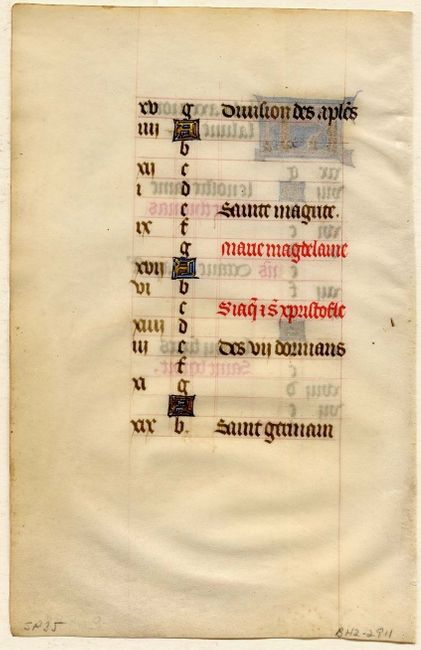 xv g Division des aplēs
iiij A
b
xij c
i d
e Sainte magrite.
ix f
g Marie magdelaine
xvij A
vi b
c S iaq̄ i S xpristofle
xiiij d
iij e Des vij dormans
f
xi g
A
xix b. Saint germain